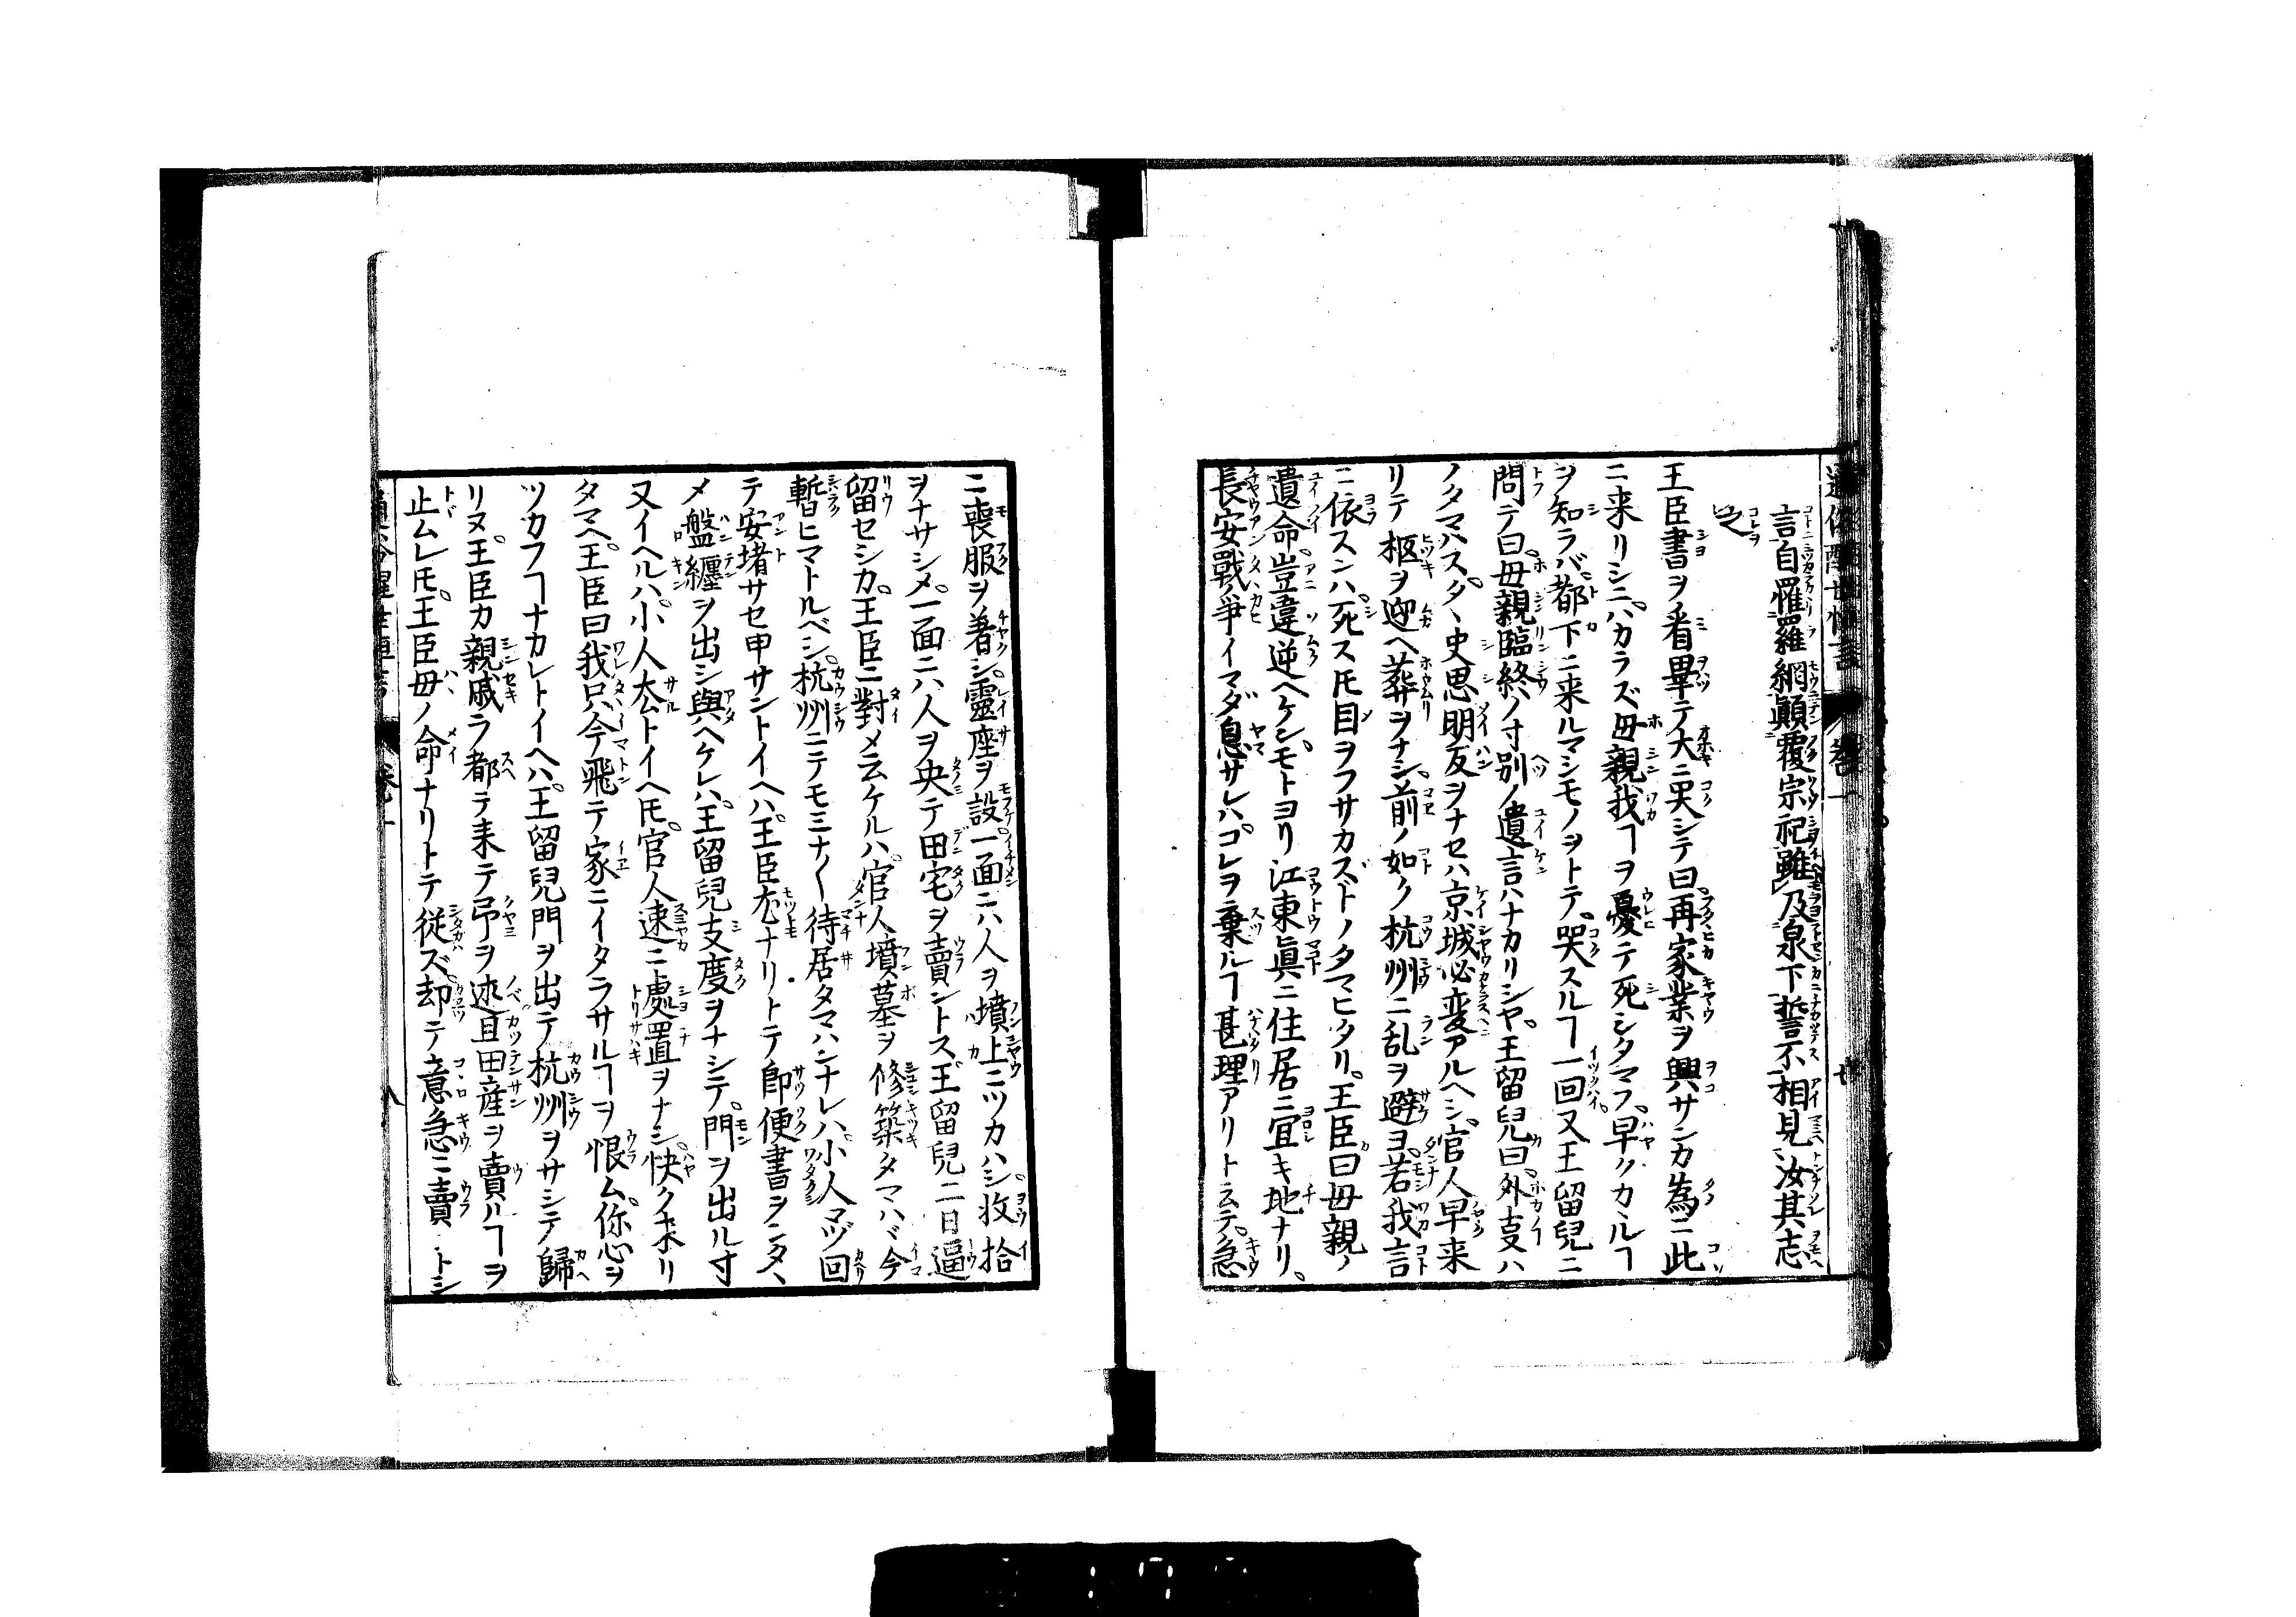 言自罹羅網顛覆宗祀雖及泉下誓不相見汝其志
之
王臣書ヲ看畢テ大ニ哭シテ曰再家業ヲ興サンカ為ニ此
ニ来リシニハカラズ母親我ヿヲ憂テ死シタマフ早クカヽルヿ
ヲ知ラバ都下ニ来ルマシモノヲトテ哭スルヿ一回又王留兒ニ
問テ曰母親臨終ノ寸別ノ遺言ハナカリシヤ王留兒曰外叓ハ
ノタマハスタヽ史思明反ヲナセハ京城必変アルヘシ官人早来
リテ柩ヲ迎ヘ葬ヲナシ前ノ如ク杭州ニ乱ヲ避ヨ若我言
ニ依スンハ死スㇳモ目ヲフサカズトノタマヒタリ王臣曰母親ノ
遺命豈違逆ヘケンモトヨリ江東眞ニ住居ニ宜キ地ナリ
長安戰爭イマダ息サレハコレヲ棄ルヿ甚理アリト云テ急
ニ喪服ヲ著シ靈座ヲ設一面ニハ人ヲ墳上ニツカハシ收拾
ヲナサシメ一面ニハ人ヲ央テ田宅ヲ賣ントス王留兒二日逼
留セシカ王臣ニ對メ云ケルハ官人墳墓ヲ修築タマハバ今
暫ヒマトルベシ杭州ニテモミナ〱待居タマハンナレハ小人マヅ回
テ安堵サセ申サントイヘハ王臣尤ナリトテ即便書ヲシタヽ
メ盤纏ヲ出シ與ヘケレハ王留兒支度ヲナシテ門ヲ出ル寸
又イヘルハ小人厺トイヘㇳモ官人速ニ處置ヲナシ快ク来リ
タマヘ王臣曰我只今飛テ家ニイタラサルヿヲ恨ム你心ヲ
ツカフヿナカレトイヘハ王留兒門ヲ出テ杭州ヲサシテ歸
リヌ王臣カ親戚ラ都テ来テ弔ヲ述且田産ヲ賣ルヿヲ
止ムレㇳモ王臣母ノ命ナリトテ從ズ却テ意急ニ賣ントシ